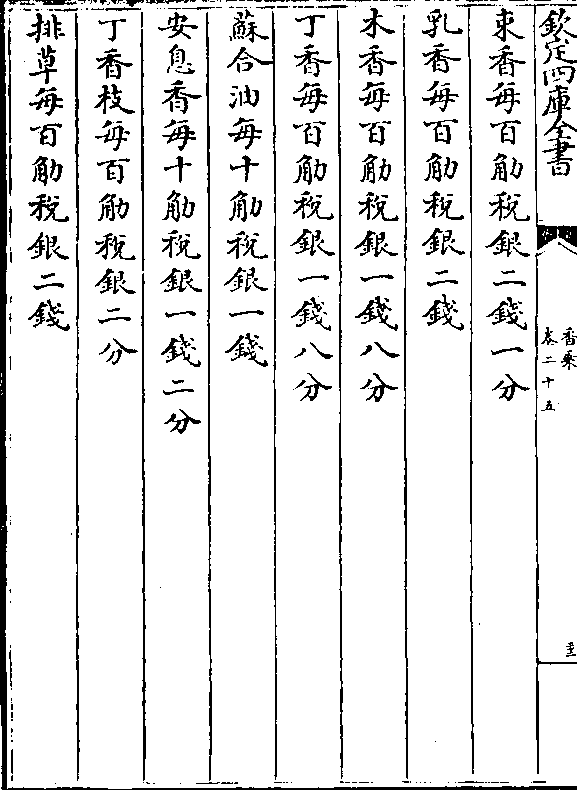 欽定四庫全書
香乘
卷二十五
束香每百觔稅銀二錢一分
乳香每百觔稅銀二錢
木香每百觔稅銀一錢八分
丁香每百觔稅銀一錢八分
蘇合油每十觔稅銀一錢
安息香每十觔稅銀一錢二分
丁香枝每百觔稅銀二分
排草每百觔稅銀二錢